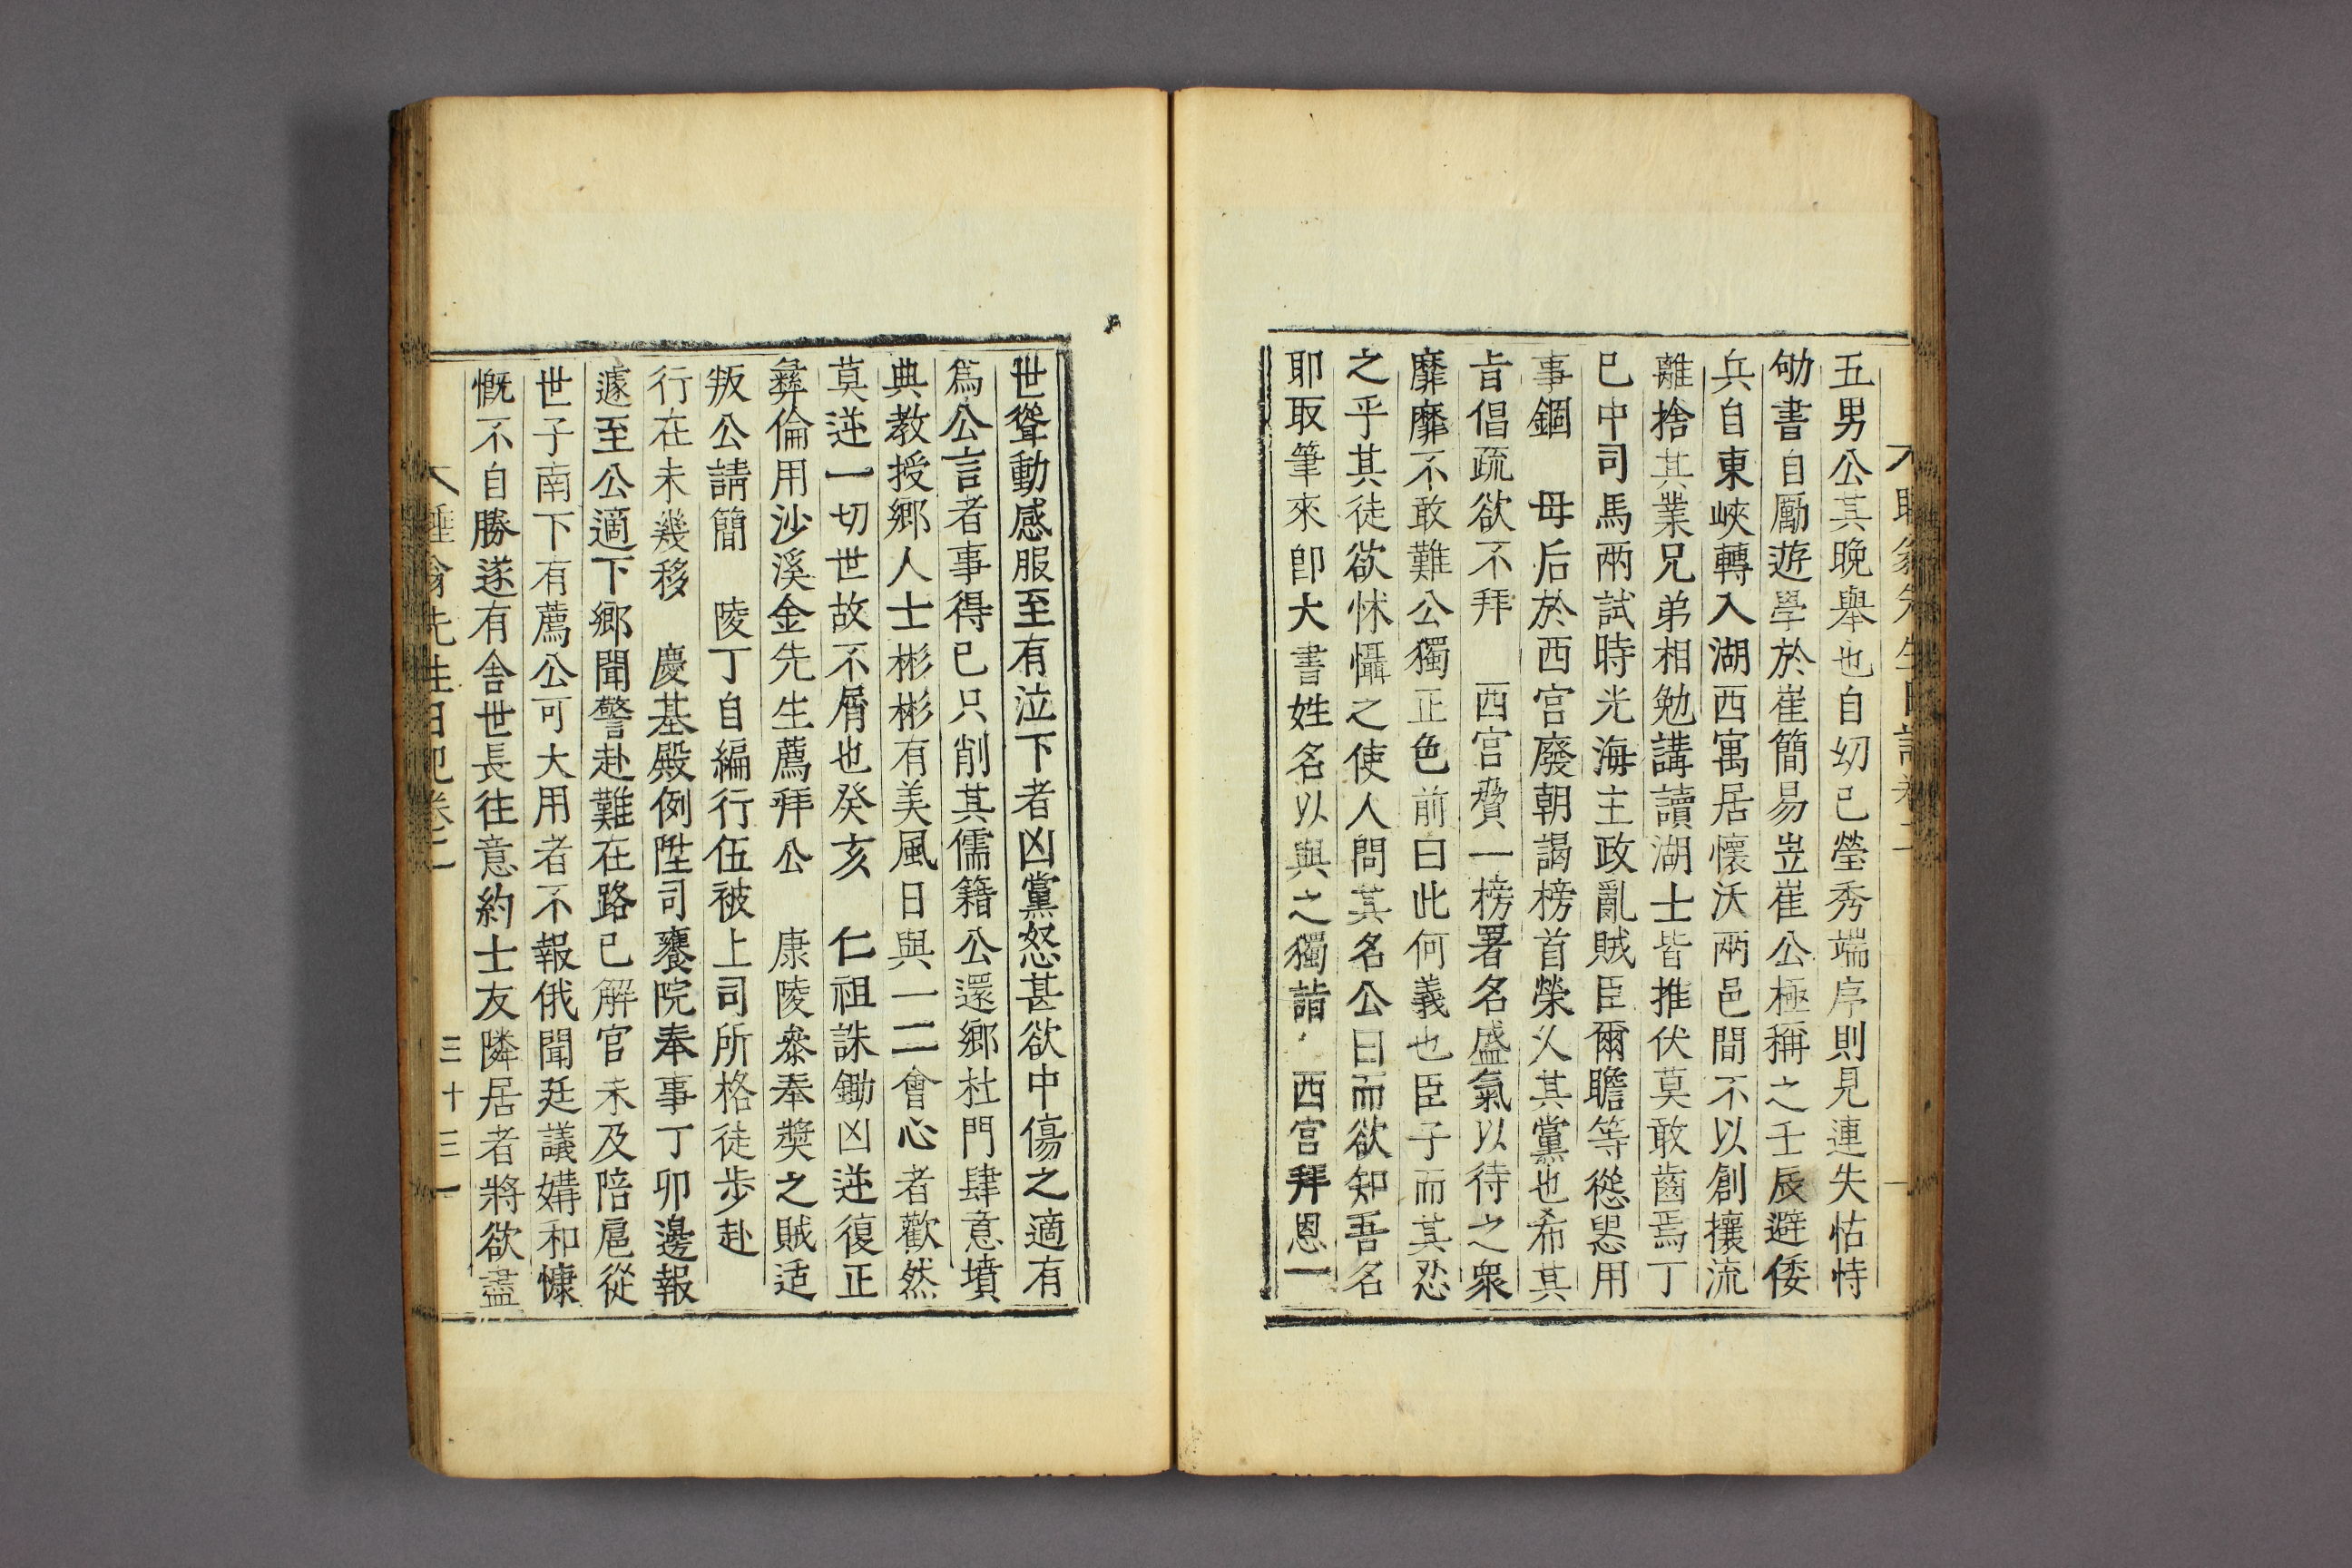 五男公其晩舉也自幼已瑩秀端序則見連失怙恃
劬書自勵遊學於崔簡易岦崔公極稱之壬辰避倭
兵自東峽轉入湖西寓居懷沃兩邑間不以創攘流
離捨其業兄弟相勉講讀湖士皆推伏莫敢齒焉丁
巳中司馬兩試時光海主政亂賊臣爾瞻等慫恿用
事錮　母后於西宮廢朝謁榜首榮乂其黨也希其
旨倡疏欲不拜　西宮費一榜署名盛氣以待之衆
靡靡不敢難公獨正色前曰此何義也臣子而其忍
之乎其徒欲怵懾之使人問其名公曰而欲知吾名
耶取筆來卽大書姓名以與之獨詣　西宮拜恩一
世聳動感服至有泣下者凶黨怒甚欲中傷之適有
爲公言者事得已只削其儒籍公還鄉杜門肆意墳
典教授鄉人士彬彬有美風日與一二會心者歡然
莫逆一切世故不屑也癸亥　仁祖誅鋤凶逆復正
彝倫用沙溪金先生薦拜公　康陵叅奉奬之賊适
叛公請簡　陵丁自編行伍被上司所格徒步赴
行在未幾移　慶基殿例陞司饔院奉事丁卯邊報
遽至公適下鄉聞警赴難在路已解官未及陪扈從
世子南下有薦公可大用者不報俄聞廷議媾和慷
慨不自勝遂有舍世長往意約士友隣居者將欲盡
翁先生日記卷二
三十三